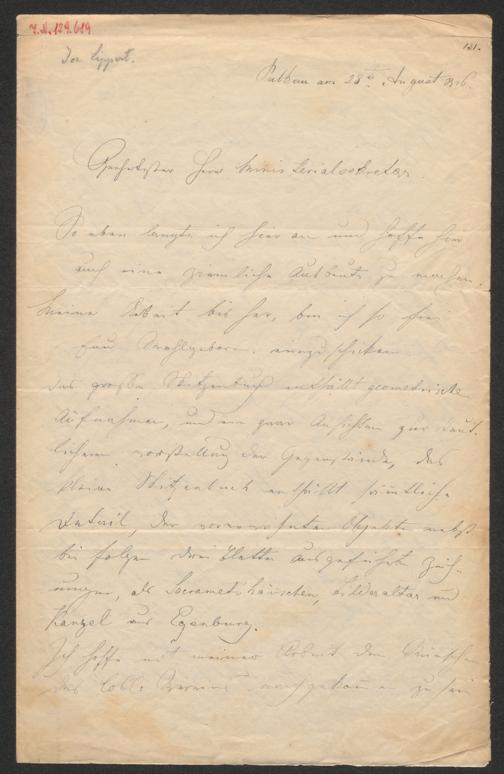 I.N. 129.689
Jos Lippert.
121.
Pulkau am 28ten August 856.
Geehrtester Herr Ministerialsekretär
So eben langte ich hier an und hoffe hier
auch eine ziemliche Ausbeute zu machen,
meine Arbeit bis her, bin ich so frei
Euer Wohlgeboren einzuschicken
das große Skitzenbuch enthällt geometrische
Aufnahmen, und ein paar Ansichten zur deut-
licheren vorstellung der Gegenstände, das
kleine Skitzenbuch enthällt sämtliche
Detail, der vorerwähnten Objekte nebst
bei folgen drei Blätter ausgeführte zeich-
nungen, als Sacramentshäuschen, Lilderaltar und
Kanzel aus Egenburg.
Ich hoffe mit meiner Arbeit den Wünschen
des löbl. Vereins nachgekommen zu sein